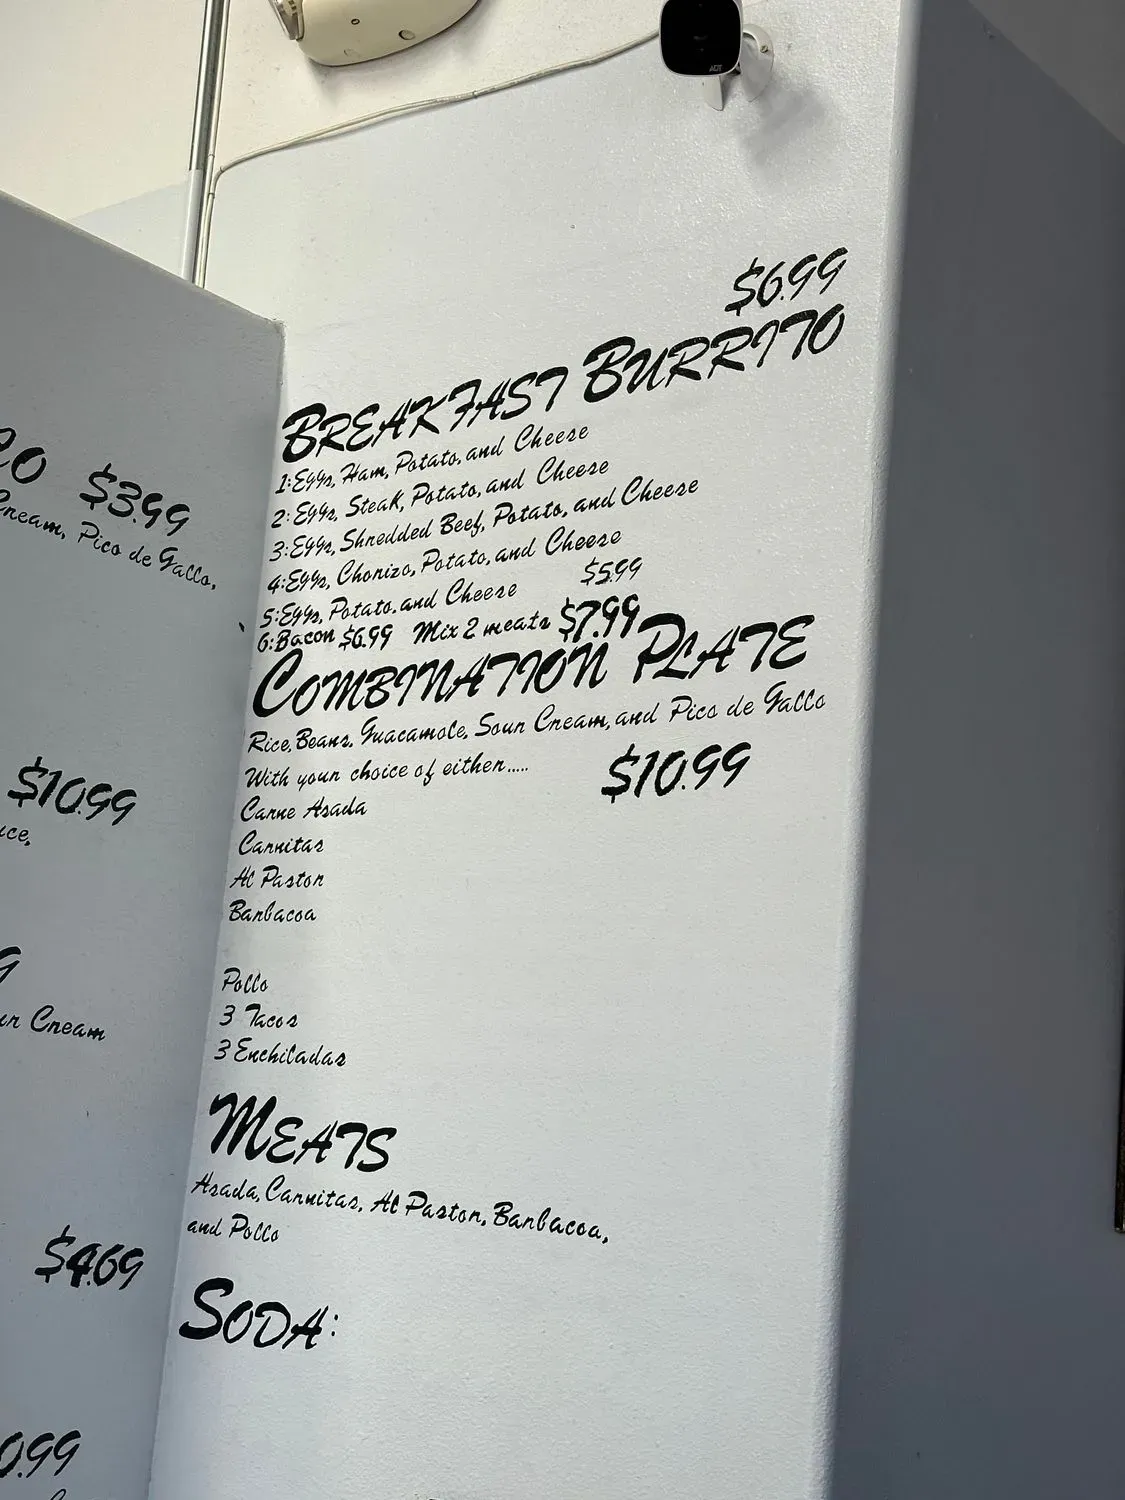 ADT
$6.99
BREAKFAST BURRITO
1:Eggs, Ham, Potato, and Cheese
2:Eggs, Steak, Potato, and Cheese
3:Eggs, Shredded Beef, Potato, and Cheese
4:Eggs, Chorizo, Potato, and Cheese
5:Eggs, Potato, and Cheese $5.99
6:Bacon $6.99 Mix 2 meats $7.99
COMBINATION PLATE
Rice, Beans, Guacamole, Sour Cream, and Pico de Gallo
With your choice of either..... $10.99
Carne Asada
Carnitas
Al Pastor
Barbacoa
Pollo
3 Tacos
3 Enchiladas
MEATS
Asada, Carnitas, Al Pastor, Barbacoa,
and Pollo
SODA:
CO $3.99
Cream, Pico de Gallo,
$10.99
Cream
$4.69
0.99